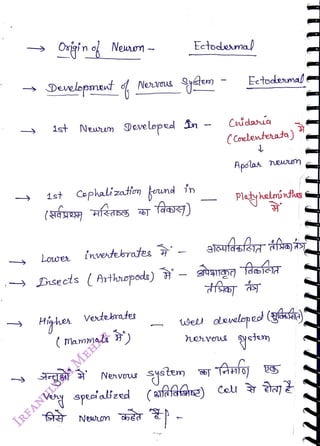 → Origin of Neuron - Ectodermal
→ Development of Nervous System - Ectodermal
→ 1st Neuron Developed In - Cnidaria में
(Coelenterata)
↓
Apolar neuron
→ 1st Cephalization found in Platyhelminthes में
(सर्वप्रथम मस्तिष्क का विकास)
→ Lower invertebrates में - अल्पविकसित तंत्रिका तंत्र
→ Insects (Arthropods) में - अपेक्षाकृत विकसित
तंत्रिका तंत्र
→ Higher Vertebrates - well developed (सुविकसित)
(Mammals में) nervous system
→ जन्तुओं में Nervous system का निर्माण एक
Very specialized (अतिविशिष्ट) Cell से होता है
जिसे Neuron कहते है।
IRFAN MEHAR